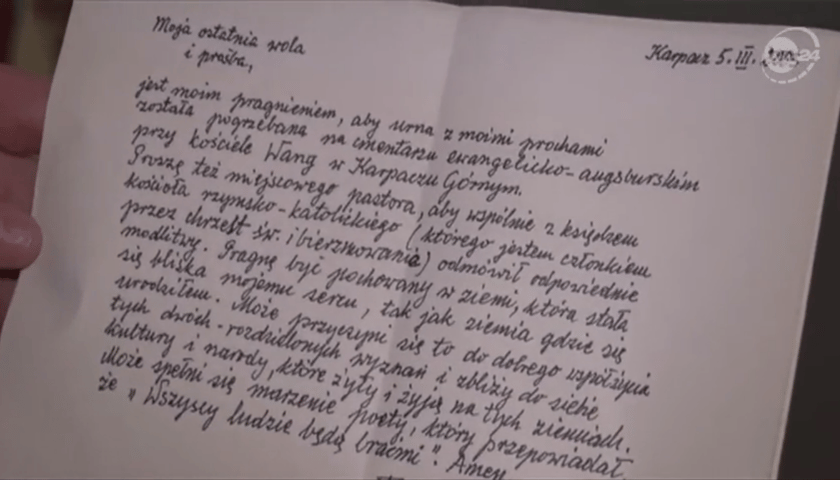 Moja ostatnia wola
i prośba,
Karpacz 5. III.
24
jest moim pragnieniem, aby urna z moimi prochami
została pogrzebana na cmentarzu ewangelicko-augsburskim
przy kościele Wang w Karpaczu Górnym.
Proszę też miejscowego pastora, aby wspólnie z księdzem
kościoła rzymsko-katolickiego (którego jestem członkiem
przez chrzest św. i bierzmowania) odmówił odpowiednie
modlitwy. Pragnę być pochowany w ziemi, która stała
się bliska mojemu sercu, tak jak ziemia gdzie się
urodziłem. Może przyczyni się to do dobrego współżycia
tych dwóch-rozdzielonych wyznań i zbliży do siebie
kultury i narody, które żyły i żyją na tych ziemiach.
Może spełni się marzenie poety, który przepowiadał,
że "Wszyscy ludzie będą braćmi". Amen